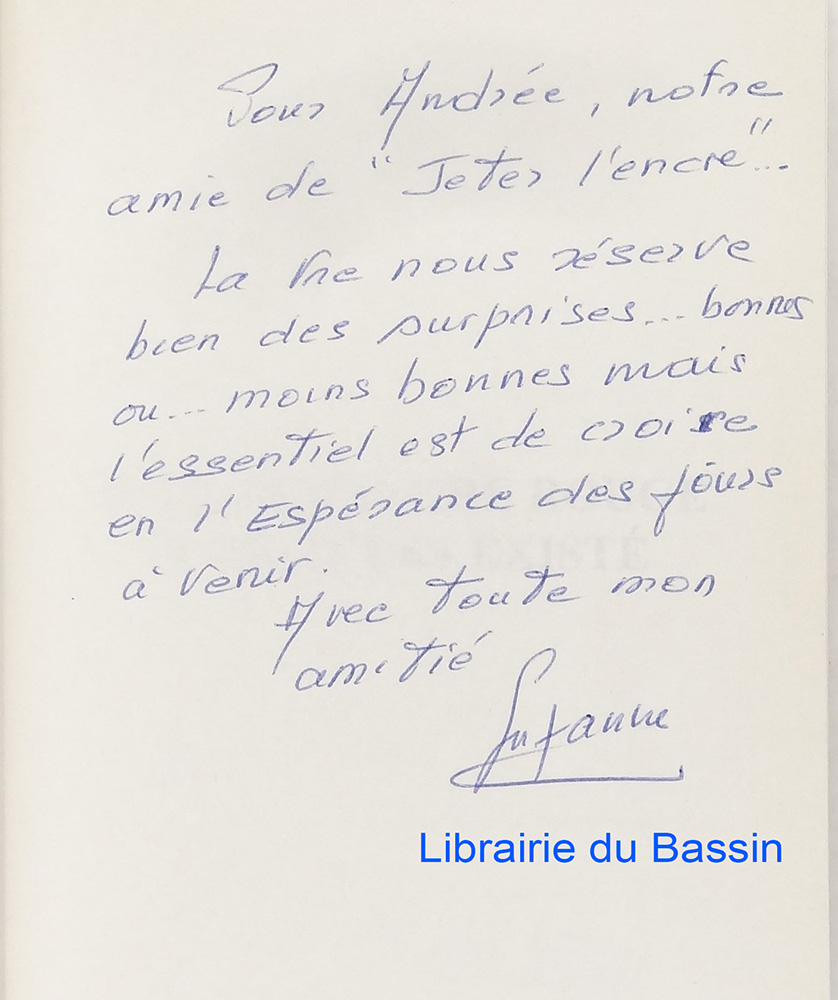 Pour Andrée, notre
amie de "Jeter l'encre"...
La Vie nous réserve
bien des surprises... bonnes
ou... moins bonnes mais
l'essentiel est de croire
en l'Espérance des jours
à venir.
Avec toute mon
amitié
Suzanne
Librairie du Bassin